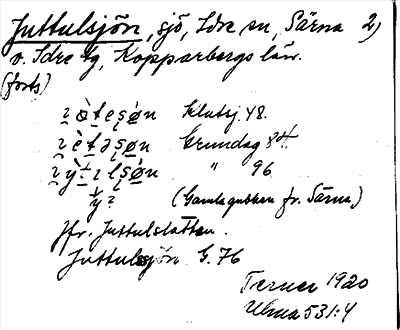 Juttulsjön, sjö, Idre sn, Särna 2)
v. Idre tg, Kopparbergs län.
(forts)
Klutsj. 48.
Grundag 84.
" 96
(Gamla gubben fr. Särna)
Jfr. Juttulslätten.
Juttulsjön G. 76
Terner 1920
Ulma 531:4